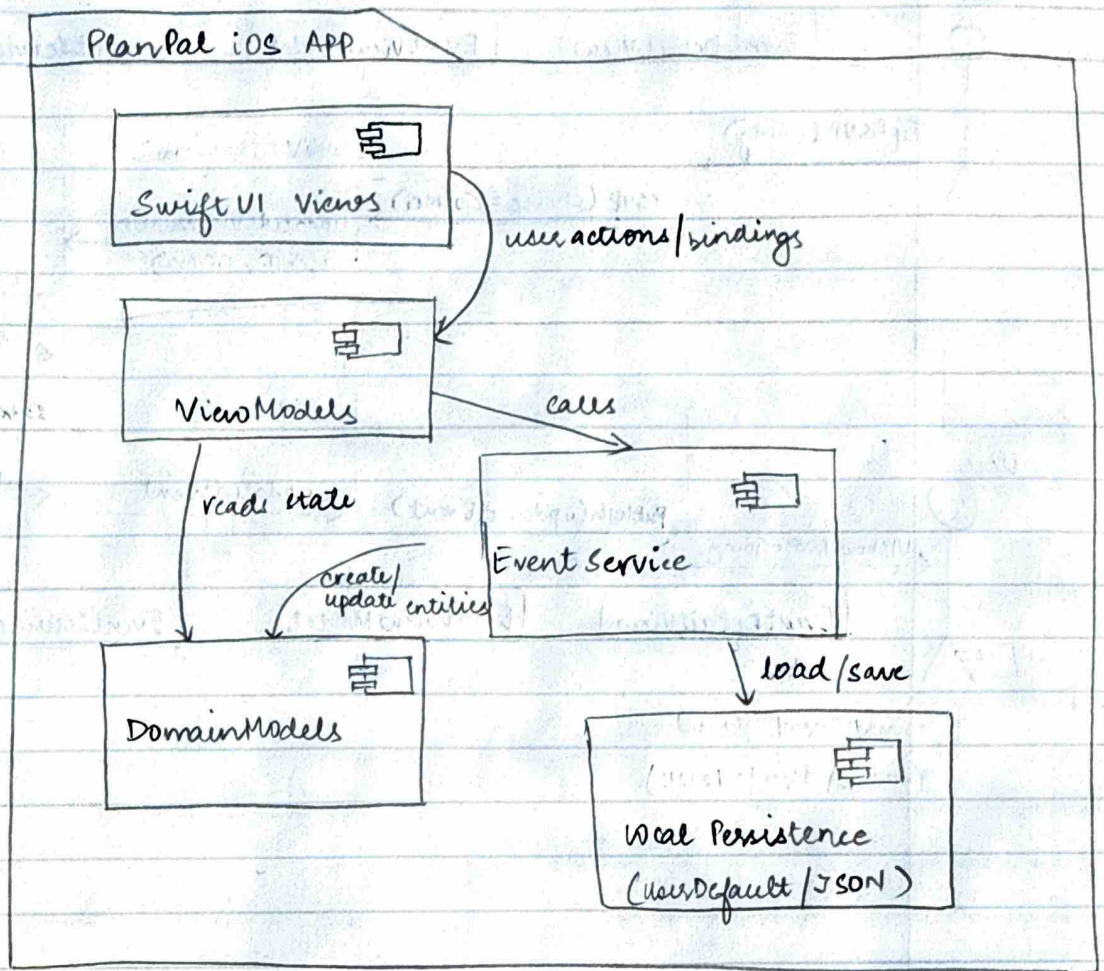 PlanPal iOS APP
SwiftUI Views
user actions/bindings
ViewModels
calls
reads state
Event Service
create/
update entities
load/save
DomainModels
Local Persistence
(UserDefault/JSON)